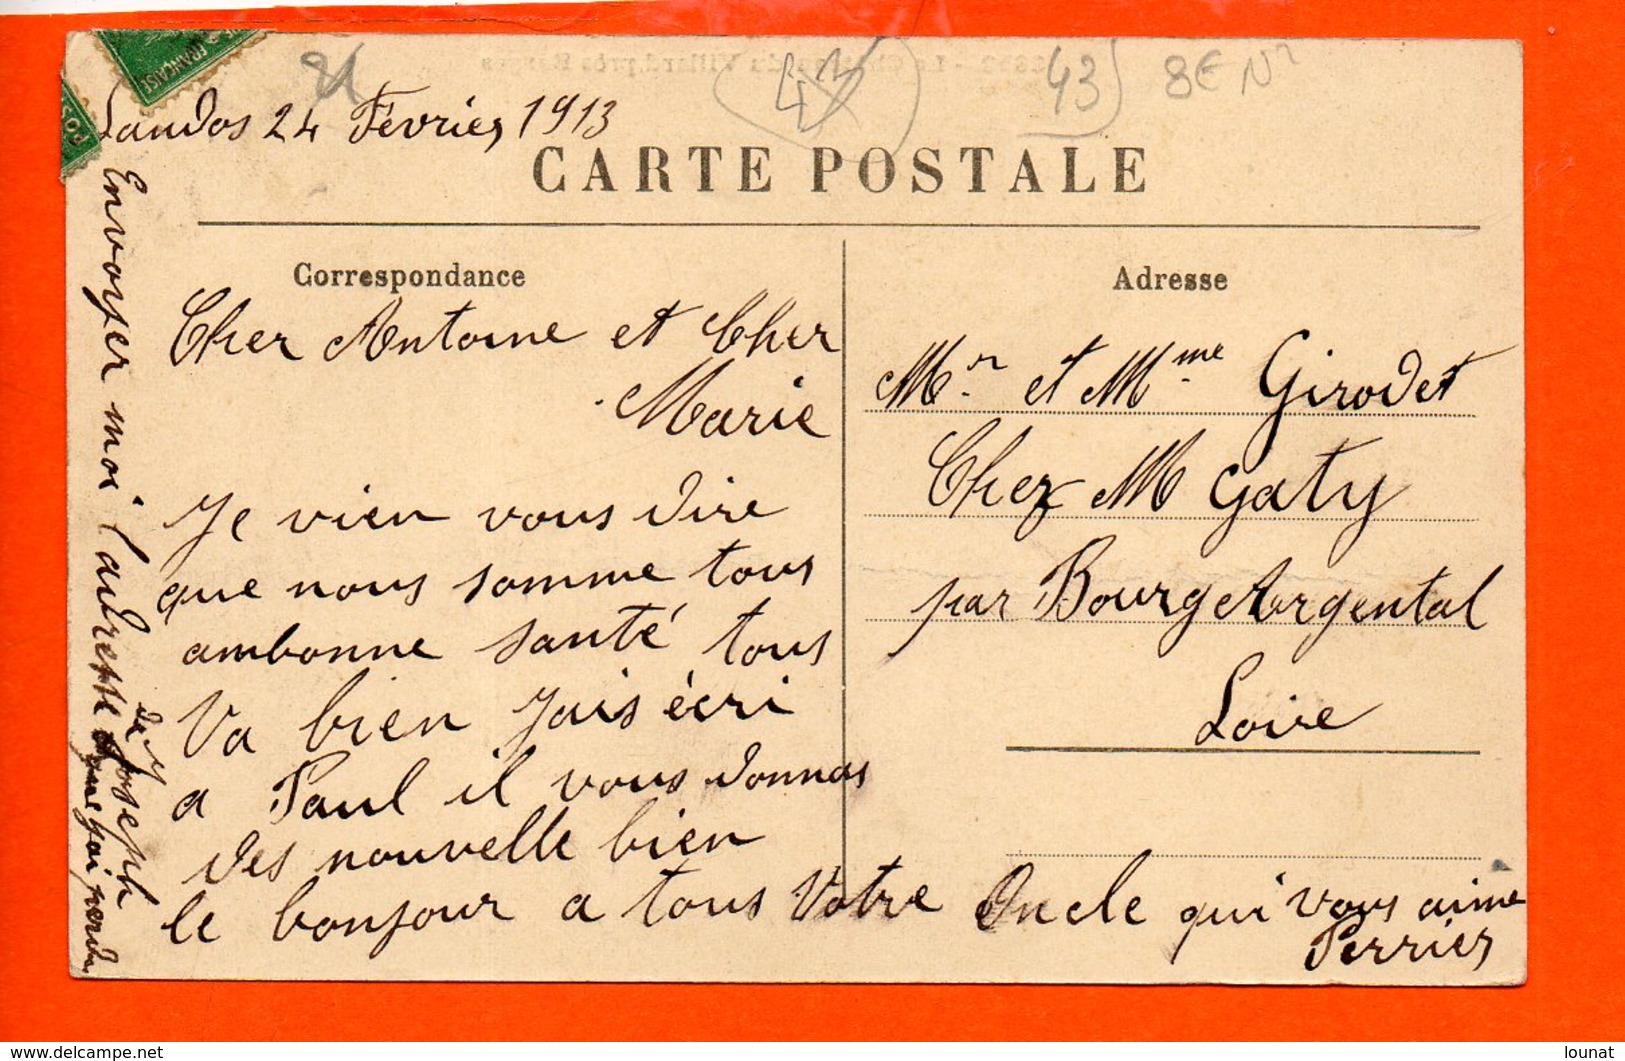 Landos 24 Février 1913
43
43
8€ N
CARTE POSTALE
Correspondance
Adresse
Cher Antoine et Cher
Marie
Je vien vous dire
que nous somme tous
ambonne santé tous
Va bien Jais écri
a Paul il vous donnas
des nouvelle bien
le bonjour a tous Votre Oncle qui vous aime
Perrier
Mr. et Mme Girodet
Chez M Gaty
par Bourg Argental
Loire
Envoyer moi l'adresse de Joseph
que j'ai perdu
FRANÇAISE
POS
lounat
delcampe.net